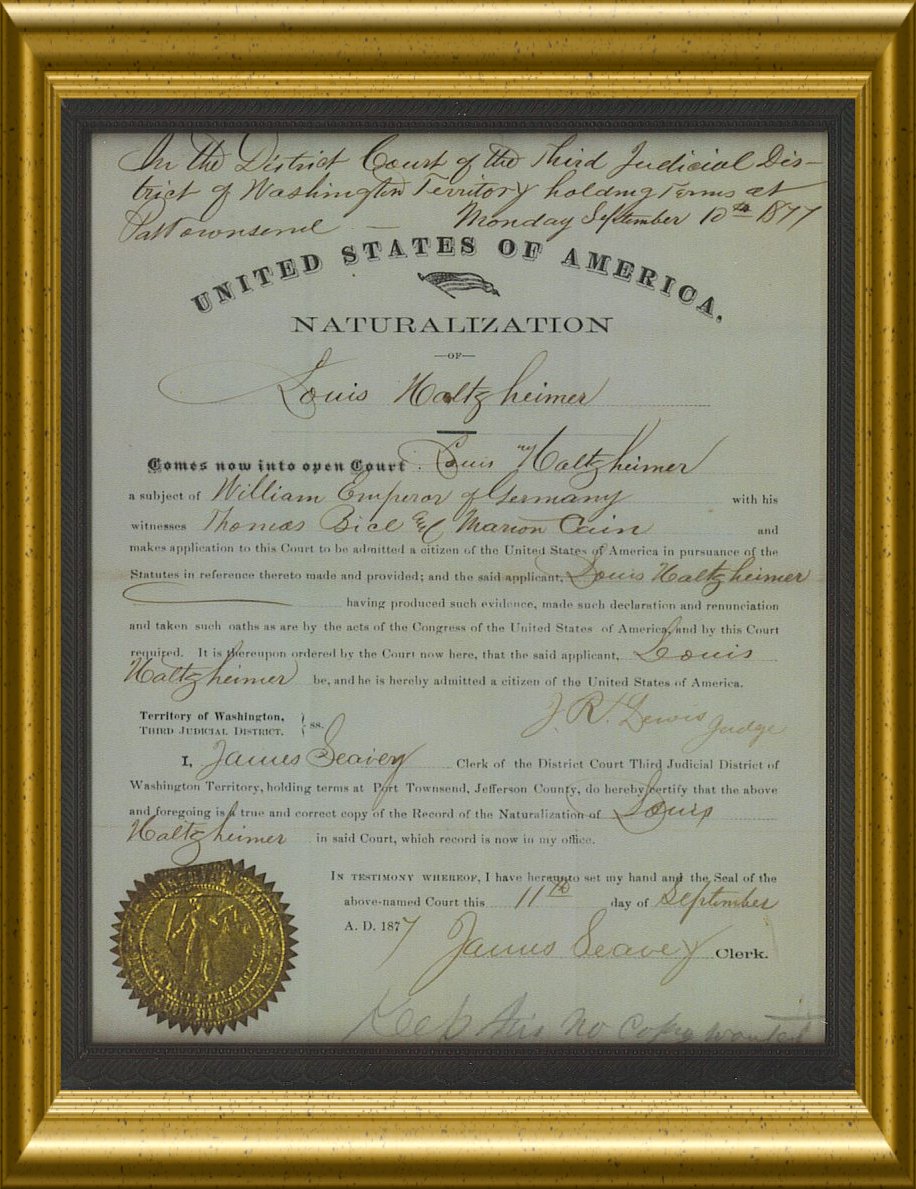 In the District Court of the Third Judicial Dis-
trict of Washington Territory holding Terms at
Port Townsend — Monday September 10th 1877
UNITED STATES OF AMERICA.
NATURALIZATION
—OF—
Louis Haltzheimer
Comes now into open Court Louis Haltzheimer
a subject of William Emperor of Germany with his
witnesses Thomas Bice and Marion Cain and
makes application to this Court to be admitted a citizen of the United States of America in pursuance of the
Statutes in reference thereto made and provided; and the said applicant, Louis Haltzheimer
having produced such evidence, made such declaration and renunciation
and taken such oaths as are by the acts of the Congress of the United States of America, and by this Court
required. It is thereupon ordered by the Court now here, that the said applicant, Louis
Haltzheimer be, and he is hereby admitted a citizen of the United States of America.
J. R. Lewis Judge
Territory of Washington,
THIRD JUDICIAL DISTRICT. } ss.
I, James Seavey Clerk of the District Court Third Judicial District of
Washington Territory, holding terms at Port Townsend, Jefferson County, do hereby certify that the above
and foregoing is a true and correct copy of the Record of the Naturalization of Louis
Haltzheimer in said Court, which record is now in my office.
IN TESTIMONY WHEREOF, I have hereunto set my hand and the Seal of the
above-named Court this 11th day of September
A. D. 1877 James Seavey Clerk.
Keep this no copy wanted